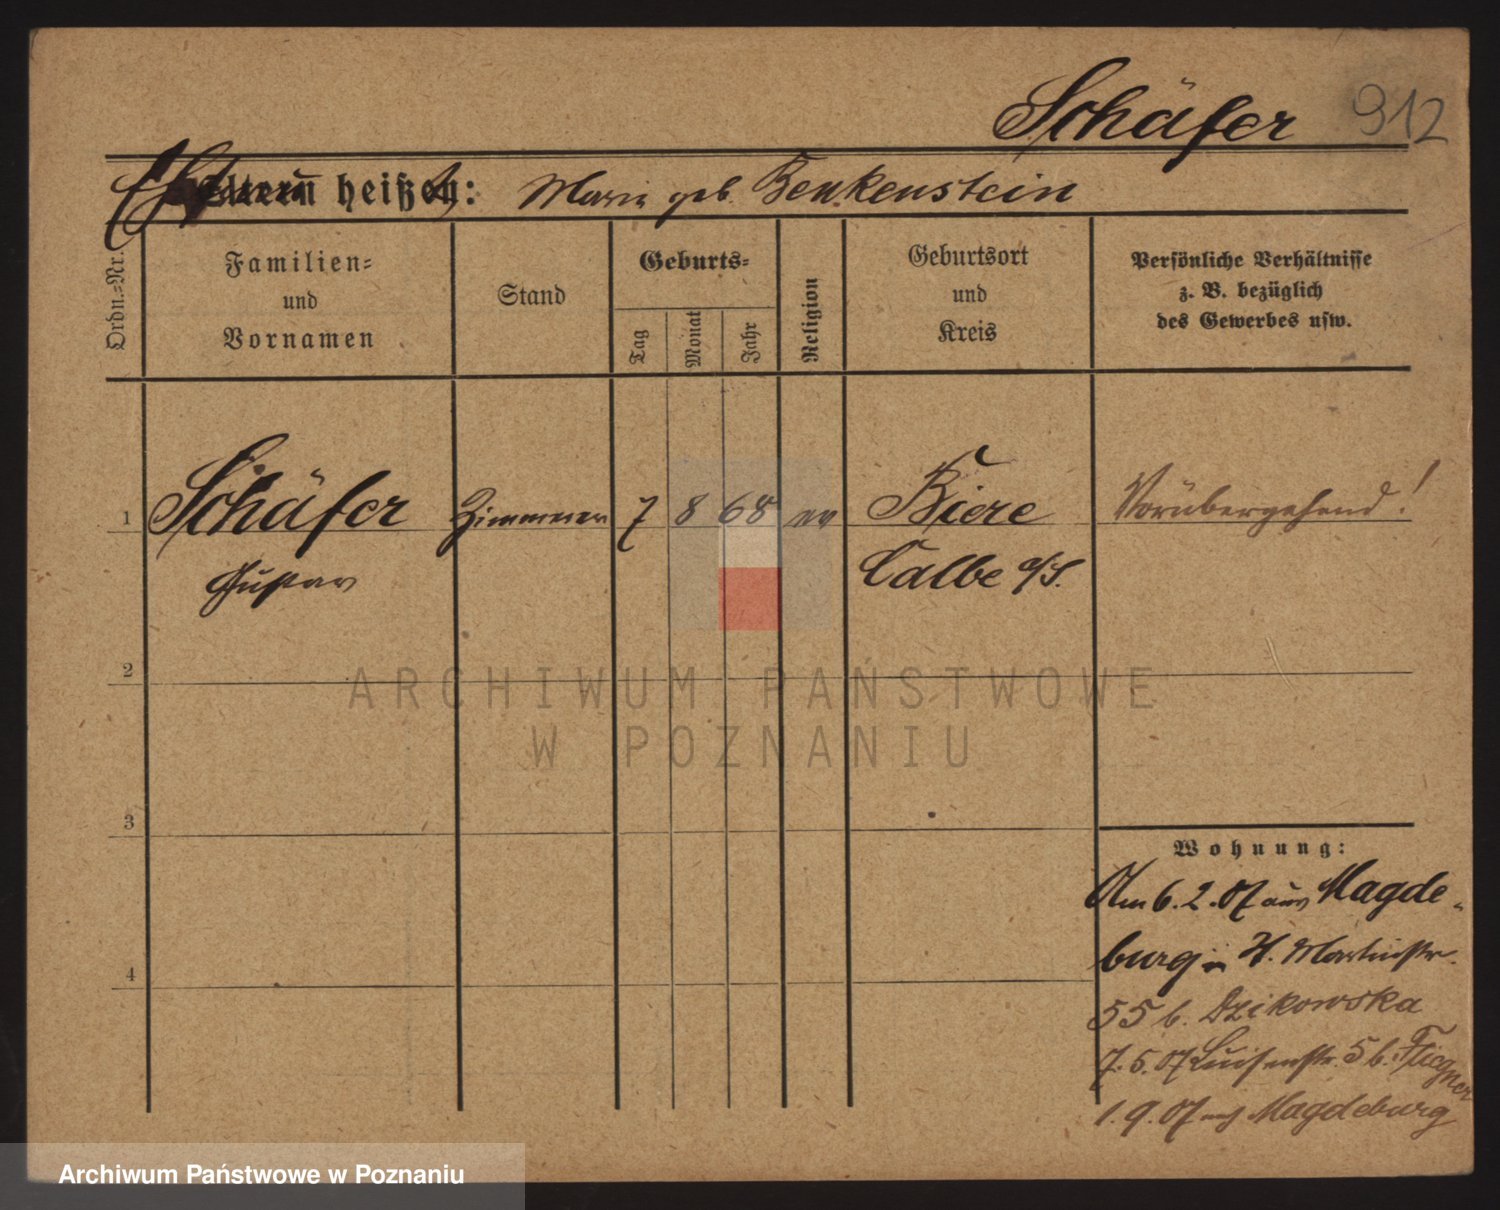 Schäfer 912
Eltern heißen: Marie geb. Benkenstein
Ordn.=Nr.
Familien=
und
Vornamen
Stand
Geburts=
Tag
Monat
Jahr
Religion
Geburtsort
und
Kreis
Persönliche Verhältnisse
z. B. bezüglich
des Gewerbes usw.
1 Schäfer 7 8 68 ev Biere Vorübergehend!
Gustav Calbe a/S.
2
ARCHIWUM PAŃSTWOWE
W POZNANIU
3
Wohnung:
Am 6.2.07 aus Magde-
burg n. H. Martinstr.
4
55 b. Dzikowska
7.5.07 Luisenstr. 5 b. Fliegner
1.9.07 nach Magdeburg
Archiwum Państwowe w Poznaniu